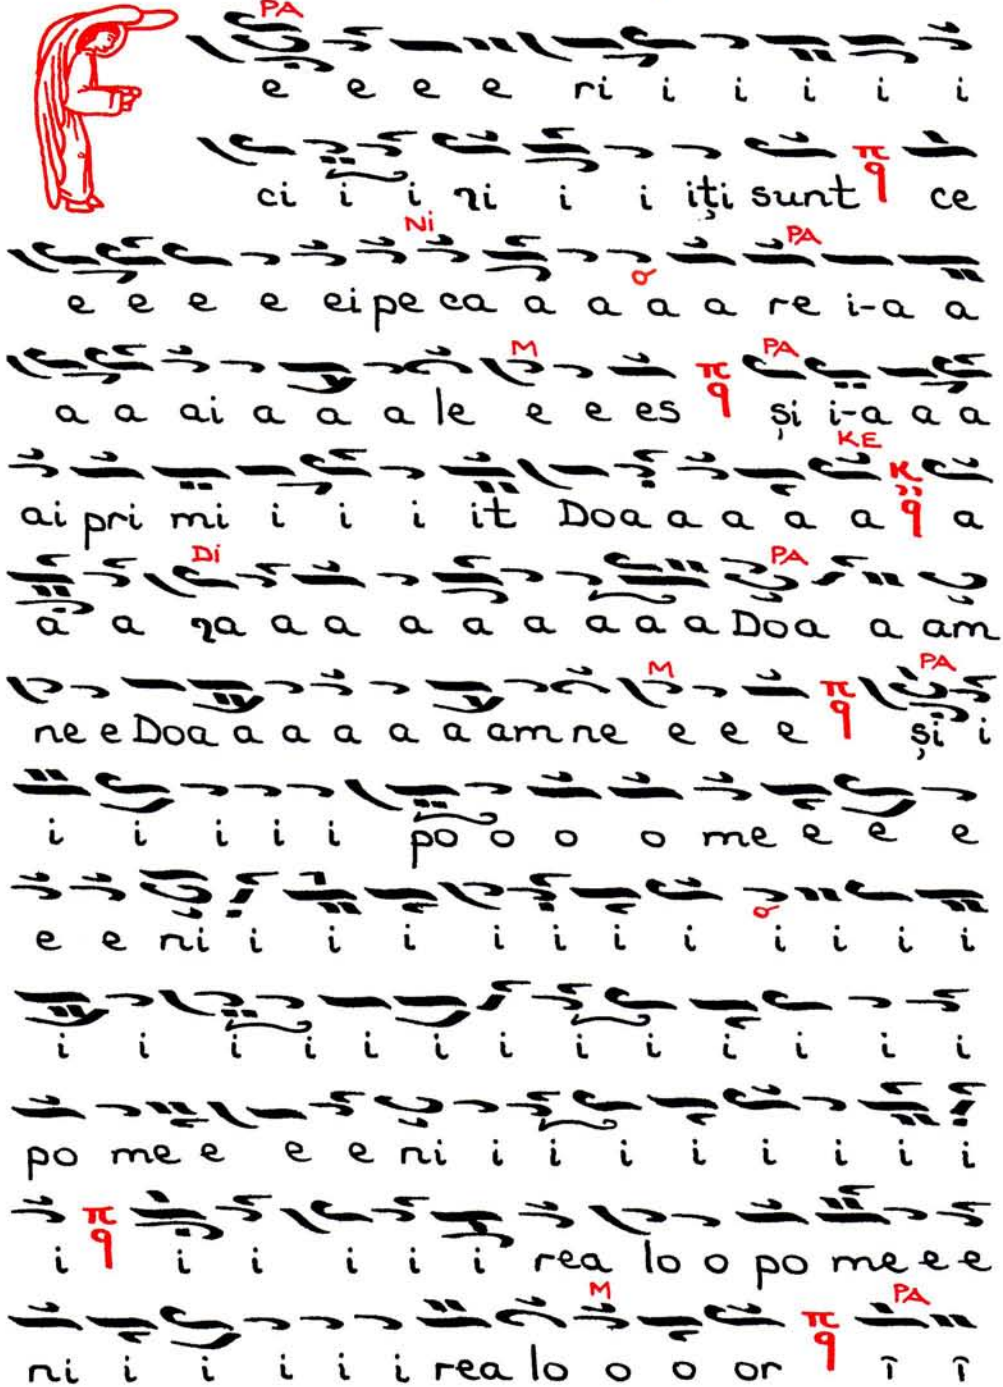 PA
e e e e ri i i i i i
ci i i ri i i iți sunt π q ce
Ni PA
e e e e ei pe ca a a a a re i-a a
M PA
a a ai a a a le e e es π q și i-a a a
KE
ai pri mi i i i it Doa a a a a K q a
Di PA
a a ra a a a a a a a a Doa a am
M PA
ne e Doa a a a a a am ne e e e π q și i
i i i i i po o o o me e e e
e e ni i i i i i i i i i
i i i i i i i i i i i i i
po me e e e ni i i i i i i i
i π q i i i i i rea lo o po me e e
M PA
ni i i i i i rea lo o o or π q î î